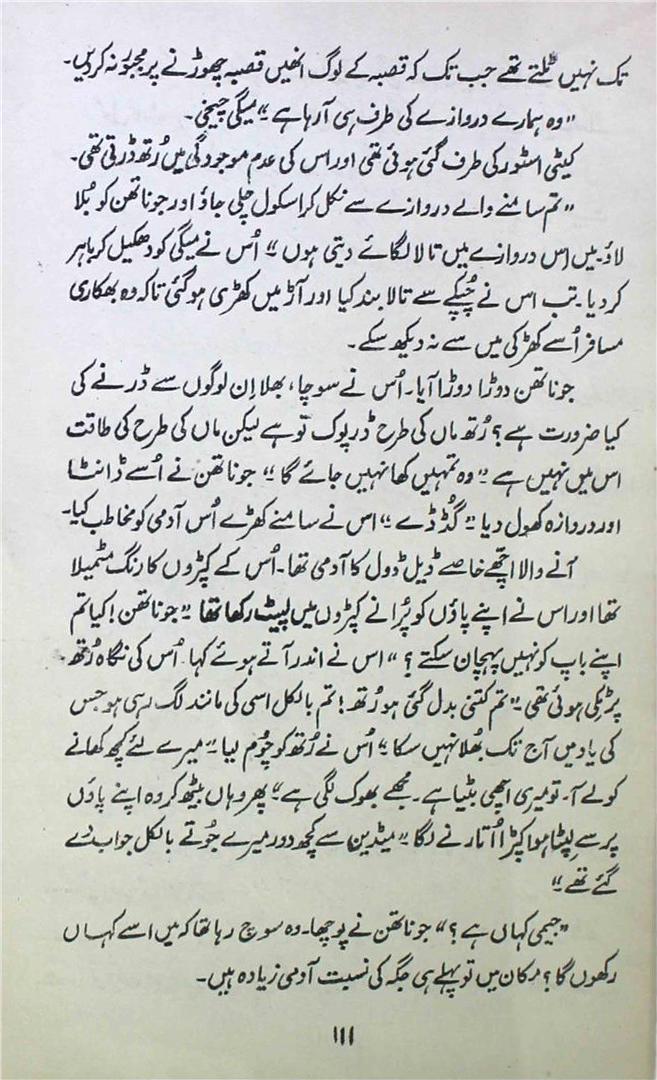 تک نہیں ٹلتے تھے جب تک کہ قصبہ کے لوگ انھیں قصبہ چھوڑنے پر مجبور نہ کر دیں۔
"وہ ہمارے دروازے کی طرف ہی آ رہا ہے" میگی چیخی۔
کیٹی اسٹور کی طرف گئی ہوئی تھی اور اس کی عدم موجودگی میں رُتھ ڈرتی تھی۔
"تم سامنے والے دروازے سے نکل کر اسکول چلی جاؤ اور جوناتھن کو بُلا
لاؤ۔ میں اِس دروازے میں تالا لگائے دیتی ہوں" اُس نے میگی کو دھکیل کر باہر
کر دیا۔ تب اس نے چُپکے سے تالا بند کیا اور آڑ میں کھڑی ہو گئی تاکہ وہ بھکاری
مسافر اُسے کھڑکی میں سے نہ دیکھ سکے۔
جوناتھن دوڑا دوڑا آیا۔ اُس نے سوچا، بھلا اِن لوگوں سے ڈرنے کی
کیا ضرورت ہے؟ رُتھ ماں کی طرح ڈرپوک تو ہے لیکن ماں کی طرح کی طاقت
اس میں نہیں ہے "وہ تمہیں کھا نہیں جائے گا" جوناتھن نے اُسے ڈانٹا
اور دروازہ کھول دیا "گُڈ ڈے" اس نے سامنے کھڑے اُس آدمی کو مخاطب کیا۔
آنے والا اچھے خاصے ڈیل ڈول کا آدمی تھا۔ اُس کے کپڑوں کا رنگ مٹمیلا
تھا اور اس نے اپنے پاؤں کو پُرانے کپڑوں میں لپیٹ رکھا تھا "جوناتھن! کیا تم
اپنے باپ کو نہیں پہچان سکتے؟" اس نے اندر آتے ہوئے کہا۔ اُس کی نگاہ رُتھ
پر ٹِکی ہوئی تھی "تم کتنی بدل گئی ہو رُتھ! تم بالکل اسی کی مانند لگ رہی ہو جس
کی یاد میں آج تک بُھلا نہیں سکا" اُس نے رُتھ کو چُوم لیا "میرے لئے کچھ کھانے
کو لے آ۔ تو میری اچھی بٹیا ہے۔ مجھے بھوک لگی ہے" پھر وہاں بیٹھ کر وہ اپنے پاؤں
پر سے لِپٹا ہوا کپڑا اُتارنے لگا "میڈین سے کچھ دور میرے جُوتے بالکل جواب دے
گئے تھے"
"جیمی کہاں ہے؟" جوناتھن نے پوچھا۔ وہ سوچ رہا تھا کہ میں اسے کہاں
رکھوں گا؟ مکان میں تو پہلے ہی جگہ کی نسبت آدمی زیادہ ہیں۔
۱۱۱